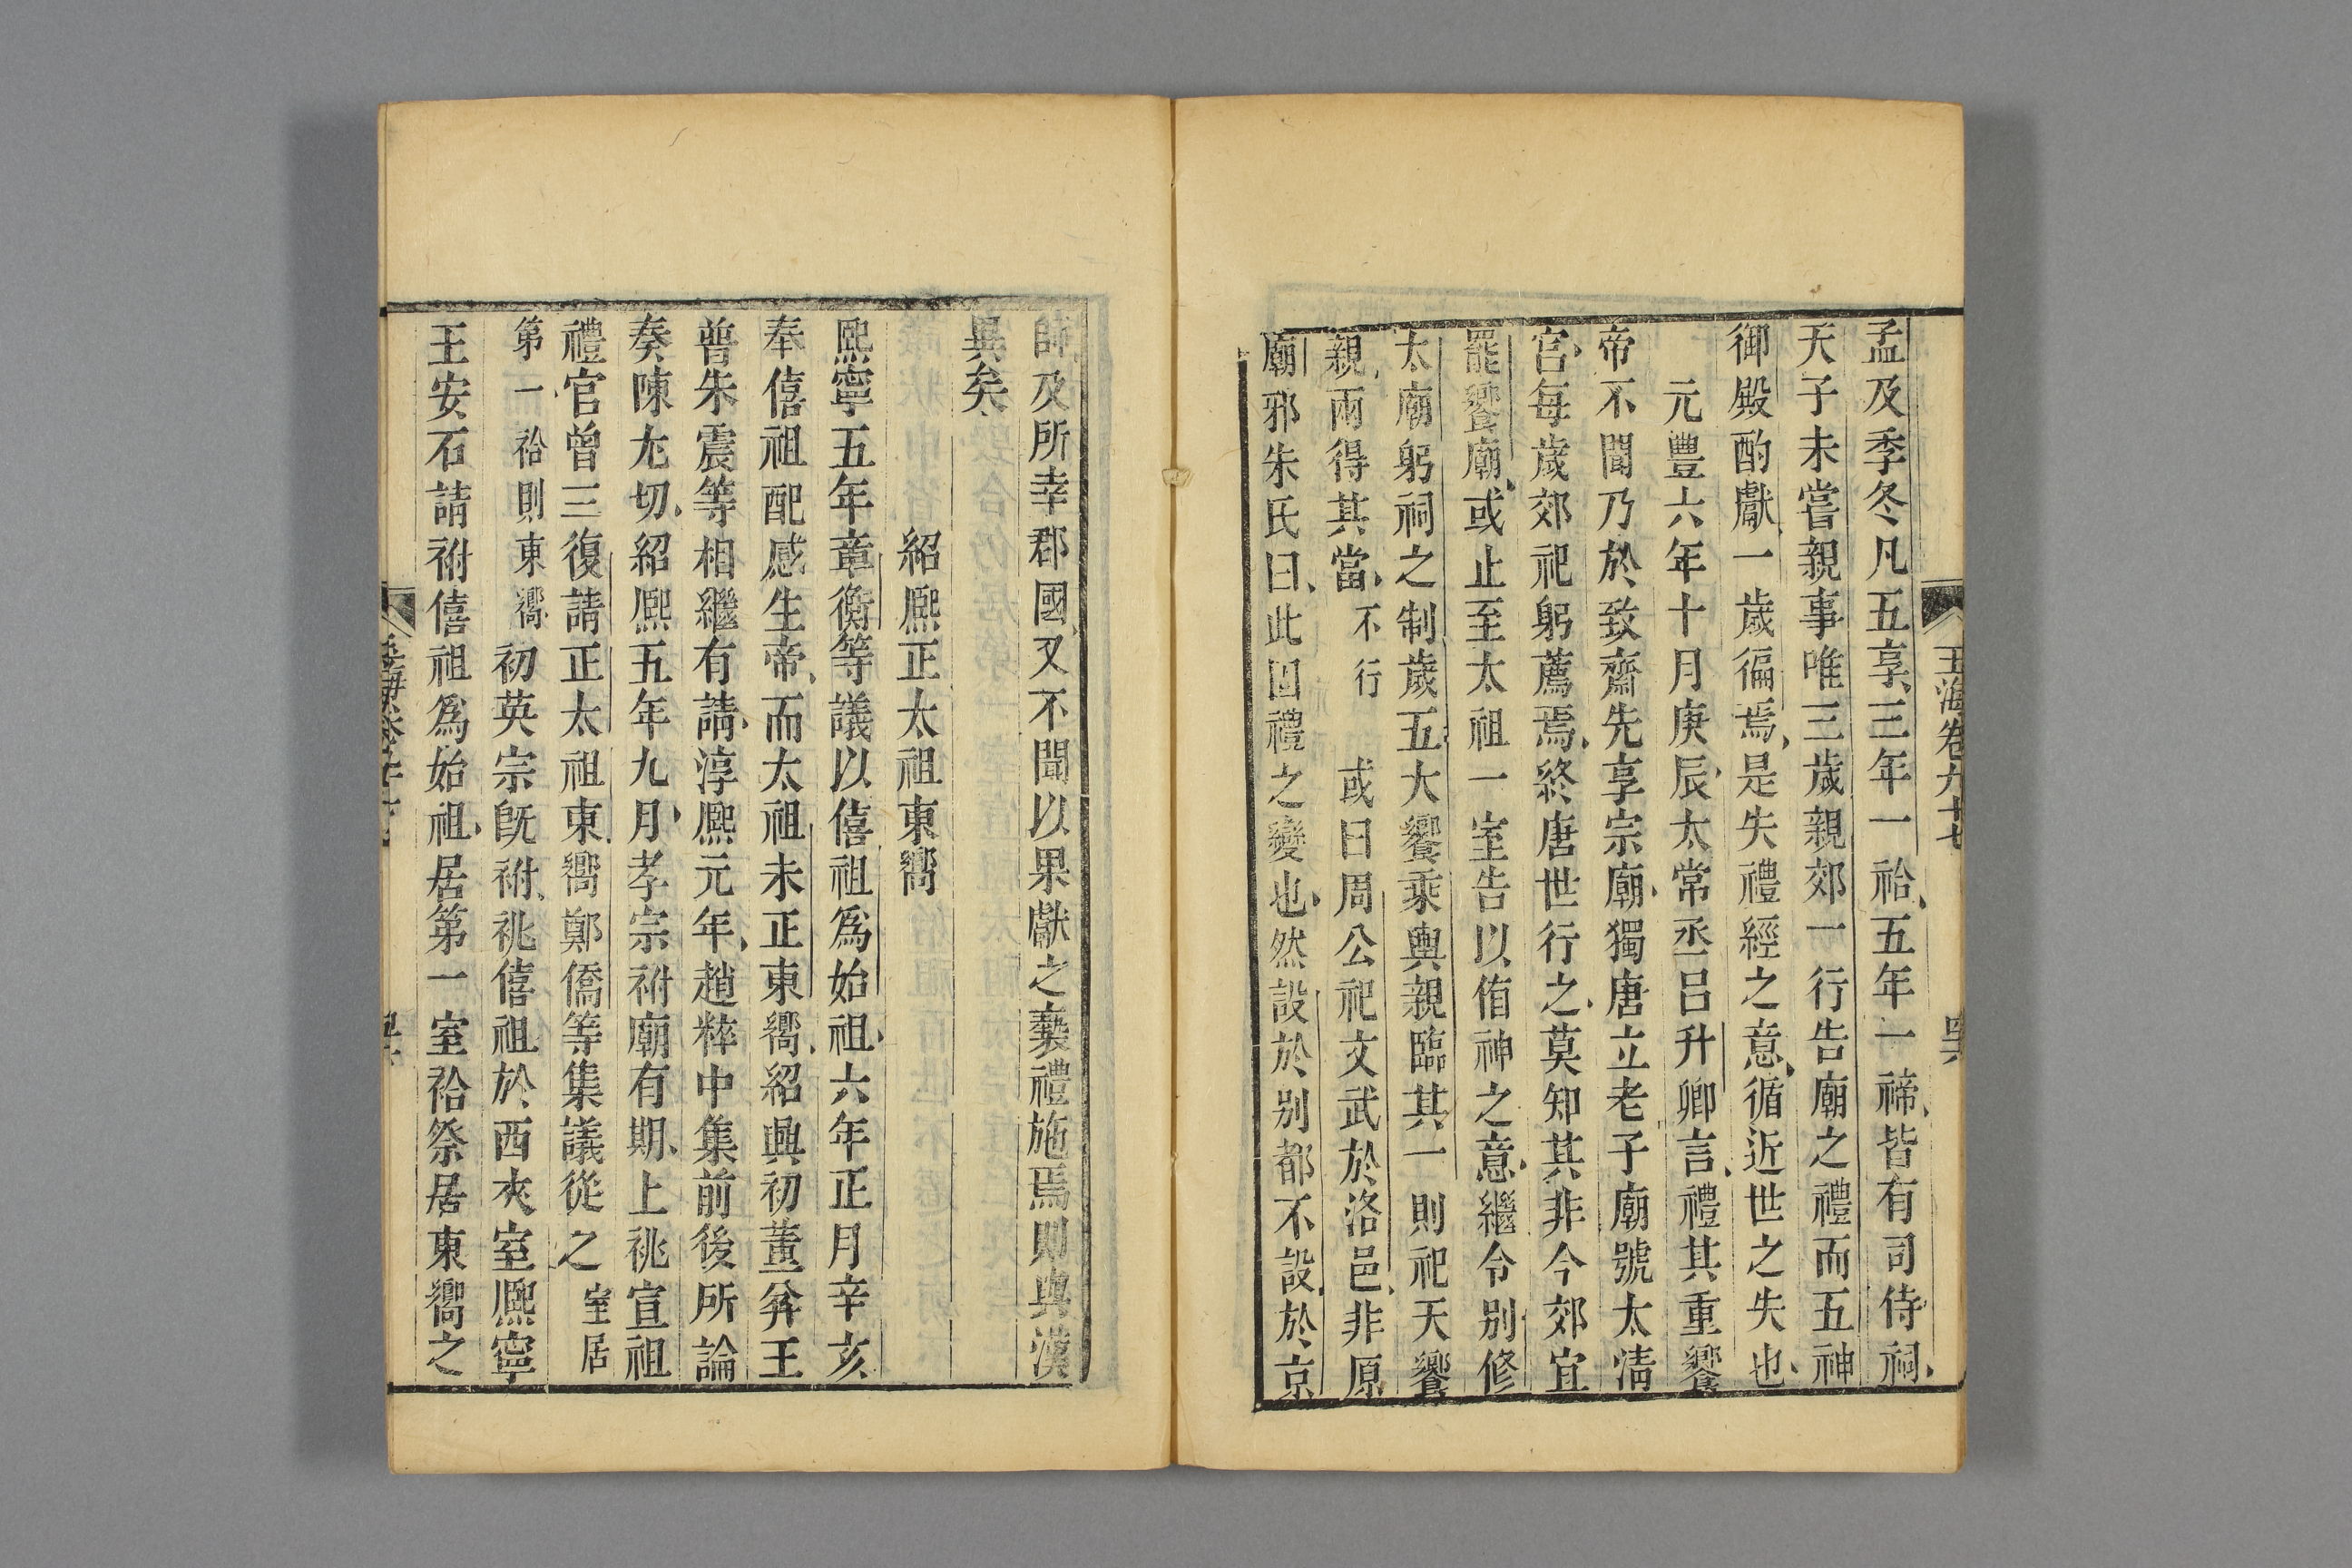 玉海卷九十七
孟及季冬凡五享三年一祫五年一禘皆有司侍祠
天子未嘗親事唯三歲親郊一行告廟之禮而五神
御殿酌獻一歲徧焉是失禮經之意循近世之失也
元豐六年十月庚辰太常丞呂升卿言禮其重饗
帝不聞乃於致齋先享宗廟獨唐立老子廟號太清
宮每歲郊祀躬薦焉終唐世行之莫知其非今郊宜
罷饗廟或止至太祖一室告以侑神之意繼令別修
太廟躬祠之制歲五大饗乘輿親臨其一則祀天饗
親兩得其當不行或曰周公祀文武於洛邑非原
廟邪朱氏曰此固禮之變也然設於別都不設於京
師及所幸郡國又不聞以果獻之褻禮施焉則與漢
異矣
紹熙正太祖東嚮
熙寧五年章衡等議以僖祖為始祖六年正月辛亥
奉僖祖配感生帝而太祖未正東嚮紹興初董弅王
普朱震等相繼有請淳熙元年趙粹中集前後所論
奏陳尤切紹熙五年九月孝宗祔廟有期上祧宣祖
禮官曾三復請正太祖東嚮鄭僑等集議從之室居
第一祫則東嚮初英宗既祔祧僖祖於西夾室熙寧
王安石請祔僖祖為始祖居第一室祫祭居東嚮之